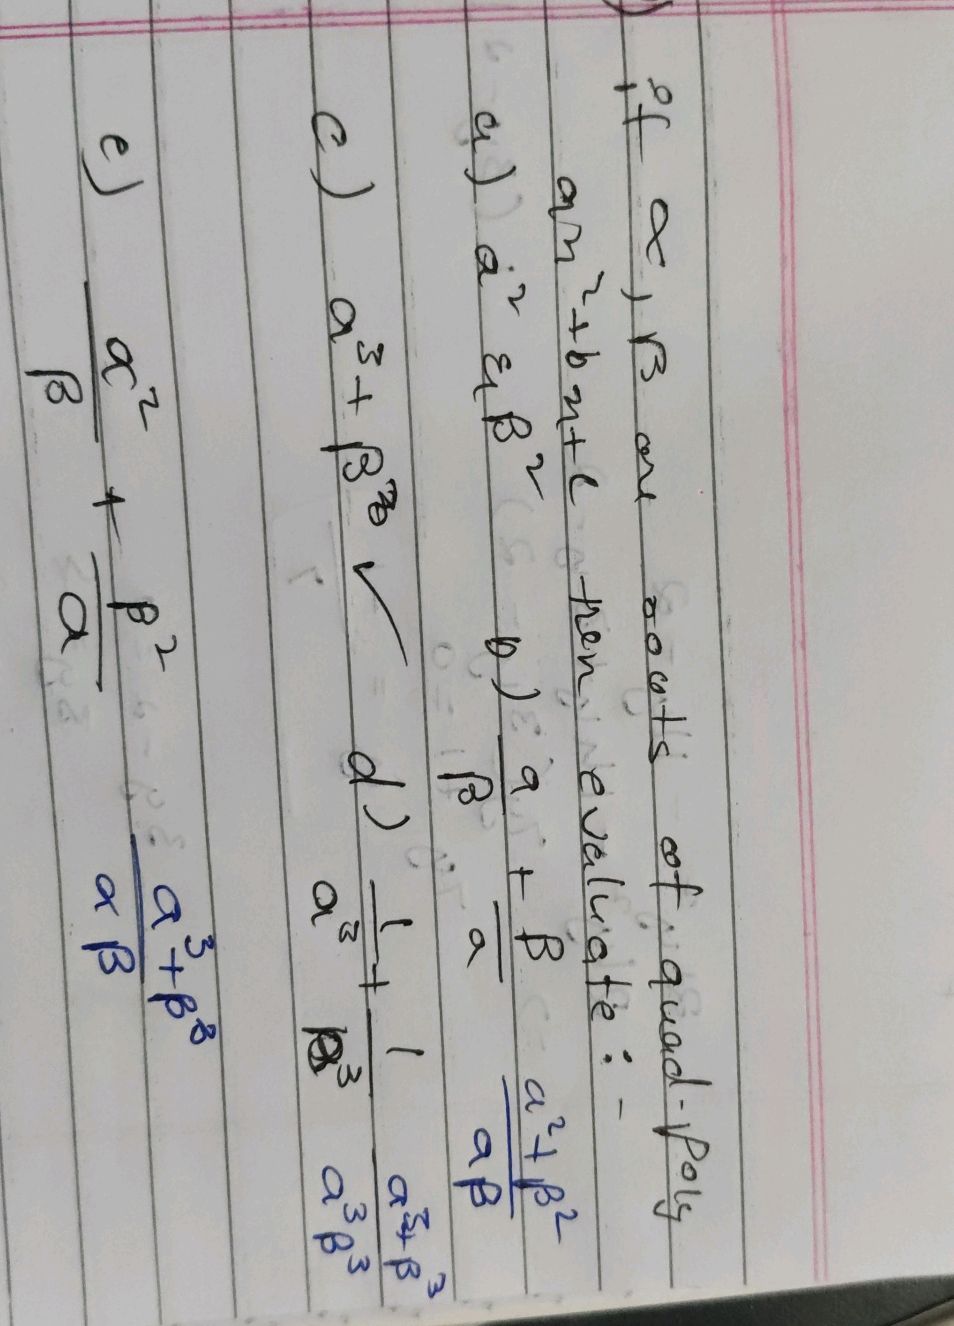 If α, β are roots of quad. Poly
ax²+bx+c then evaluate:-
a) α² & β² b) α/β + β/α α²+β²/αβ
c) α³+β³ ✓ d) 1/α³ + 1/β³ α³+β³/α³β³
e) α²/β + β²/α α³+β³/αβ